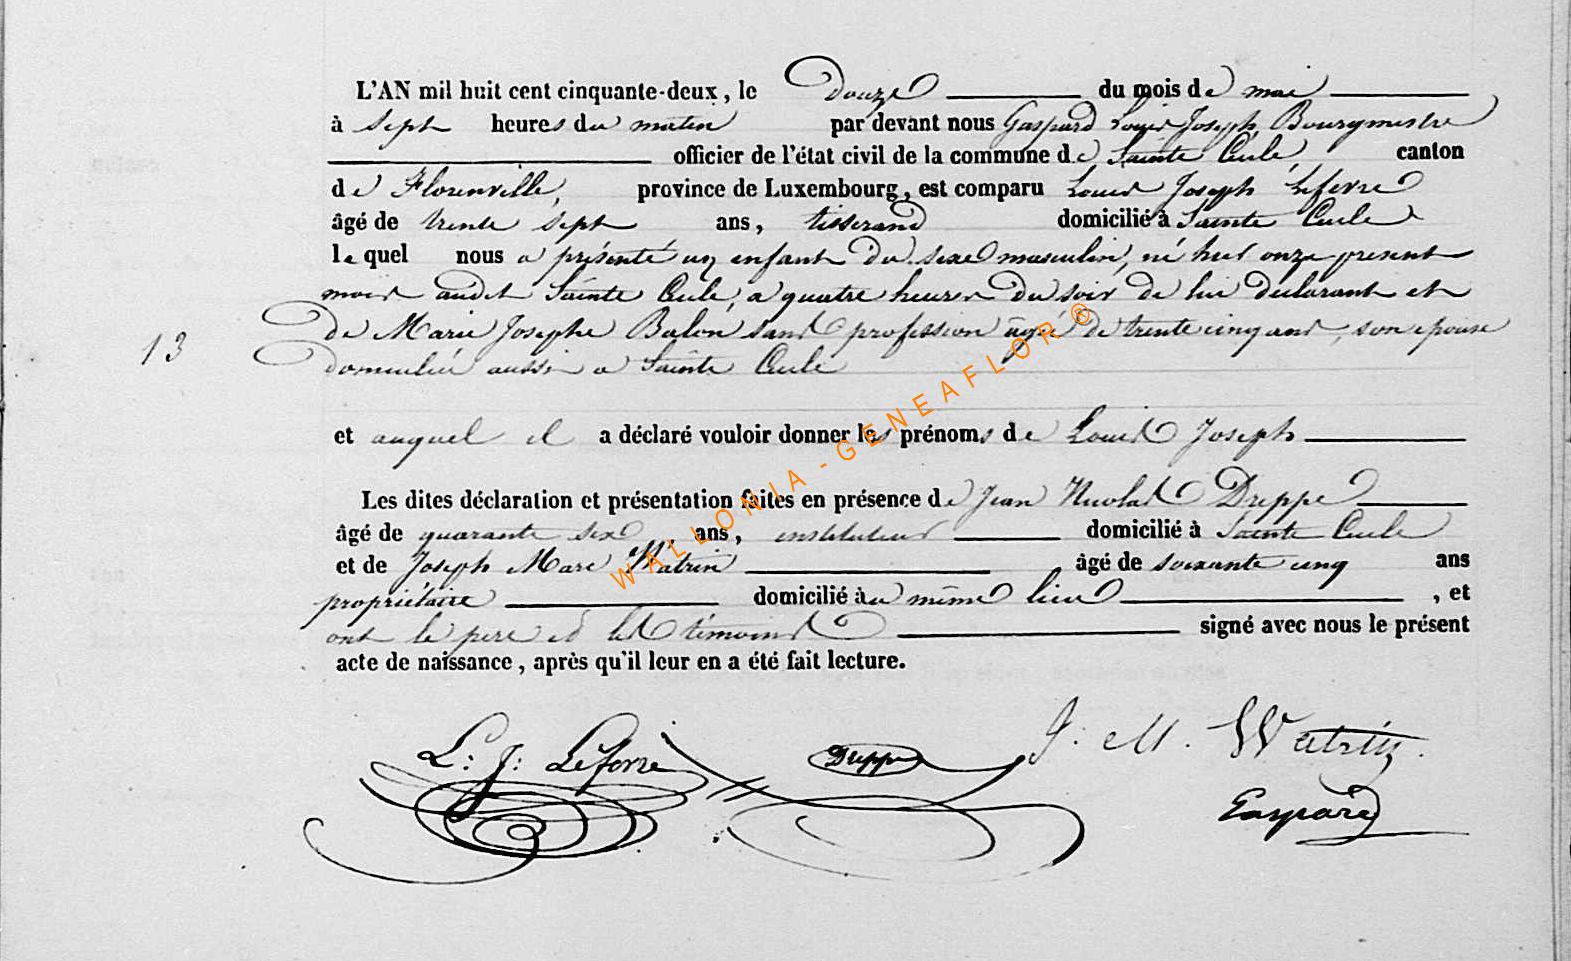 L'AN mil huit cent cinquante-deux, le Douze du mois de mai
à sept heures du matin par devant nous Gaspard Louis Joseph, Bourgmestre
officier de l'état civil de la commune de Sainte Cecile, canton
de Florenville, province de Luxembourg, est comparu Louis Joseph Lefevre
âgé de trente sept ans, tisserand domicilié à Sainte Cecile
le quel nous a présenté un enfant du sexe masculin, né hier onze present
mois audit Sainte Cecile, a quatre heures du soir de lui declarant et
de Marie Josephe Balon sans profession âgée de trente cinq ans, son epouse
13
domiciliée aussi a Sainte Cecile
et auquel il a déclaré vouloir donner les prénoms de Louis Joseph
Les dites déclaration et présentation faites en présence de Jean Nicolas Dreppe
âgé de quarante six ans, instituteur domicilié à Sainte Cecile
et de Joseph Marc Watrin âgé de soixante cinq ans
propriétaire domicilié au même lieu, et
ont le pere et les témoins signé avec nous le présent
acte de naissance, après qu'il leur en a été fait lecture.
L: J: Lefevre Dreppe J. M. Watrin.
Gaspard
WALLONIA-GENEAFLOR®